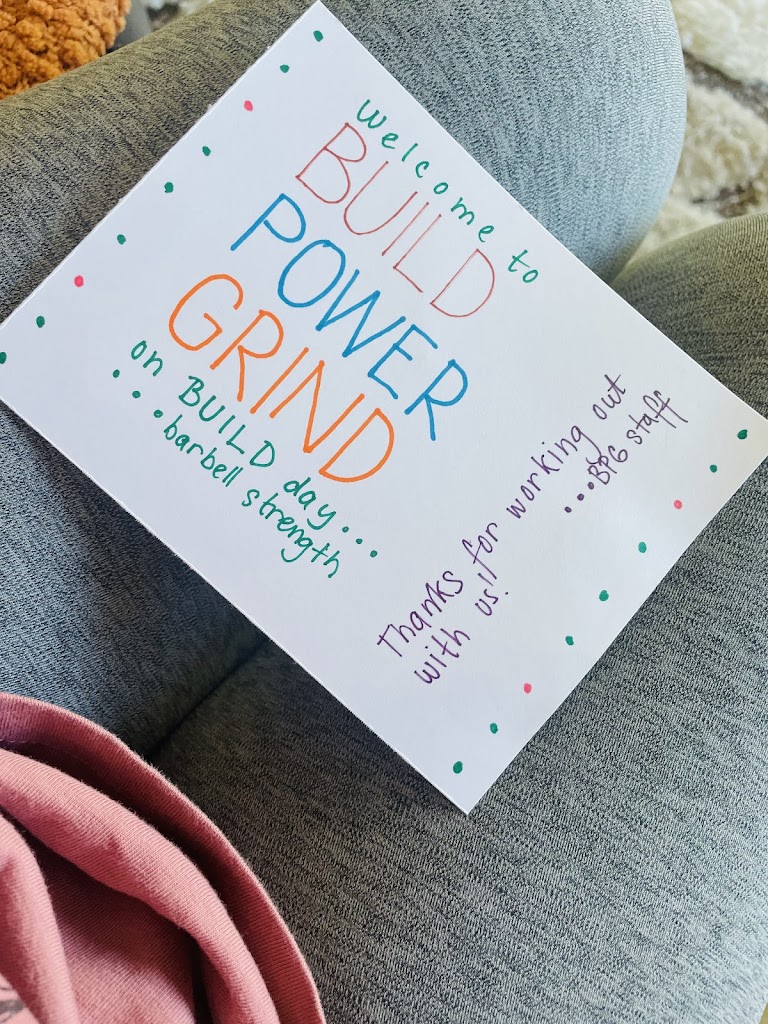 Welcome to
BUILD
POWER
GRIND
on BUILD day...
...barbell strength
Thanks for working out
with us!
...BPG staff